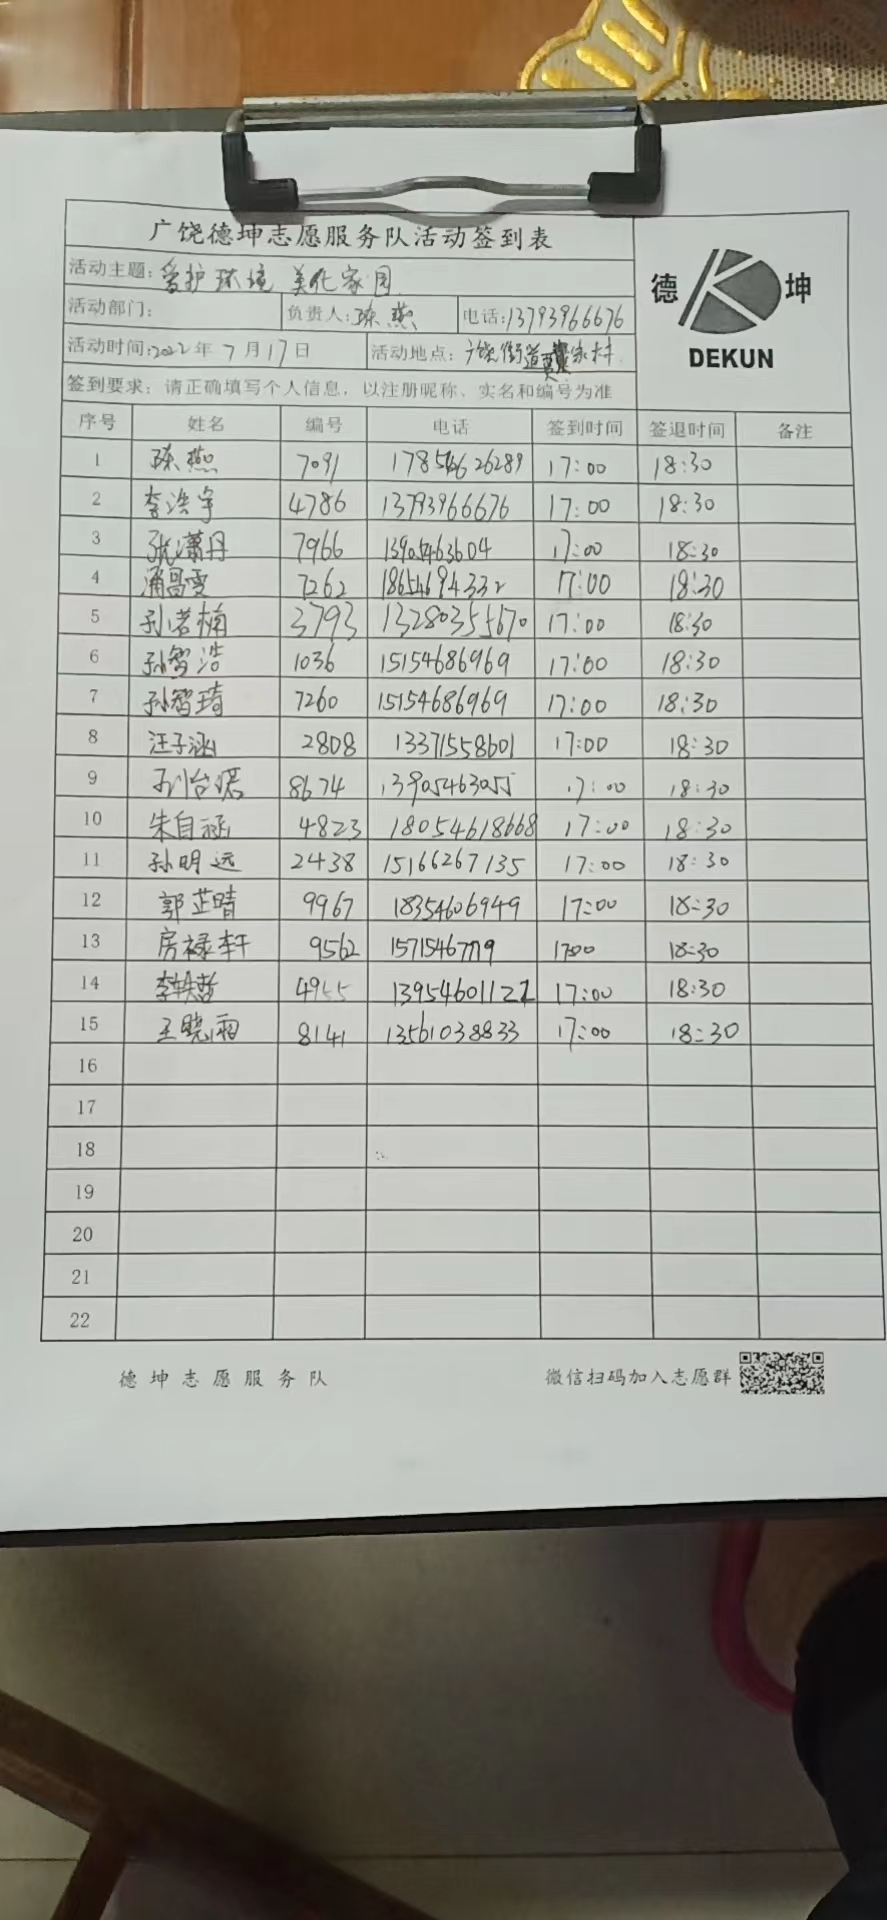 广饶德坤志愿服务队活动签到表
德 坤
DEKUN
活动主题：爱护环境 美化家园
活动部门： 负责人：陈燕 电话：13793966676
活动时间：2022年7月17日 活动地点：广饶街道 家村
签到要求：请正确填写个人信息，以注册昵称、实名和编号为准
序号 姓名 编号 电话 签到时间 签退时间 备注
1 陈燕 7091 17:00 18:30
2 李浩宇 4786 13793966676 17:00 18:30
3 张潇丹 7966 13905463604 17:00 18:30
4 7262 18654694332 17:00 18:30
5 孙若楠 3793 13280355670 17:00 18:30
6 孙智浩 1036 15154686969 17:00 18:30
7 孙智琦 7260 15154686969 17:00 18:30
8 汪子涵 2808 13371558601 17:00 18:30
9 8674 13905463055 17:00 18:30
10 朱自涵 4823 18054618668 17:00 18:30
11 孙明远 2438 15166267135 17:00 18:30
12 郭芷晴 9967 18354606949 17:00 18:30
13 房禄轩 9562 1700 18:30
14 李轶哲 4955 17:00 18:30
15 王晓雨 8141 13561038833 17:00 18:30
16
17
18
19
20
21
22
德坤志愿服务队 微信扫码加入志愿群